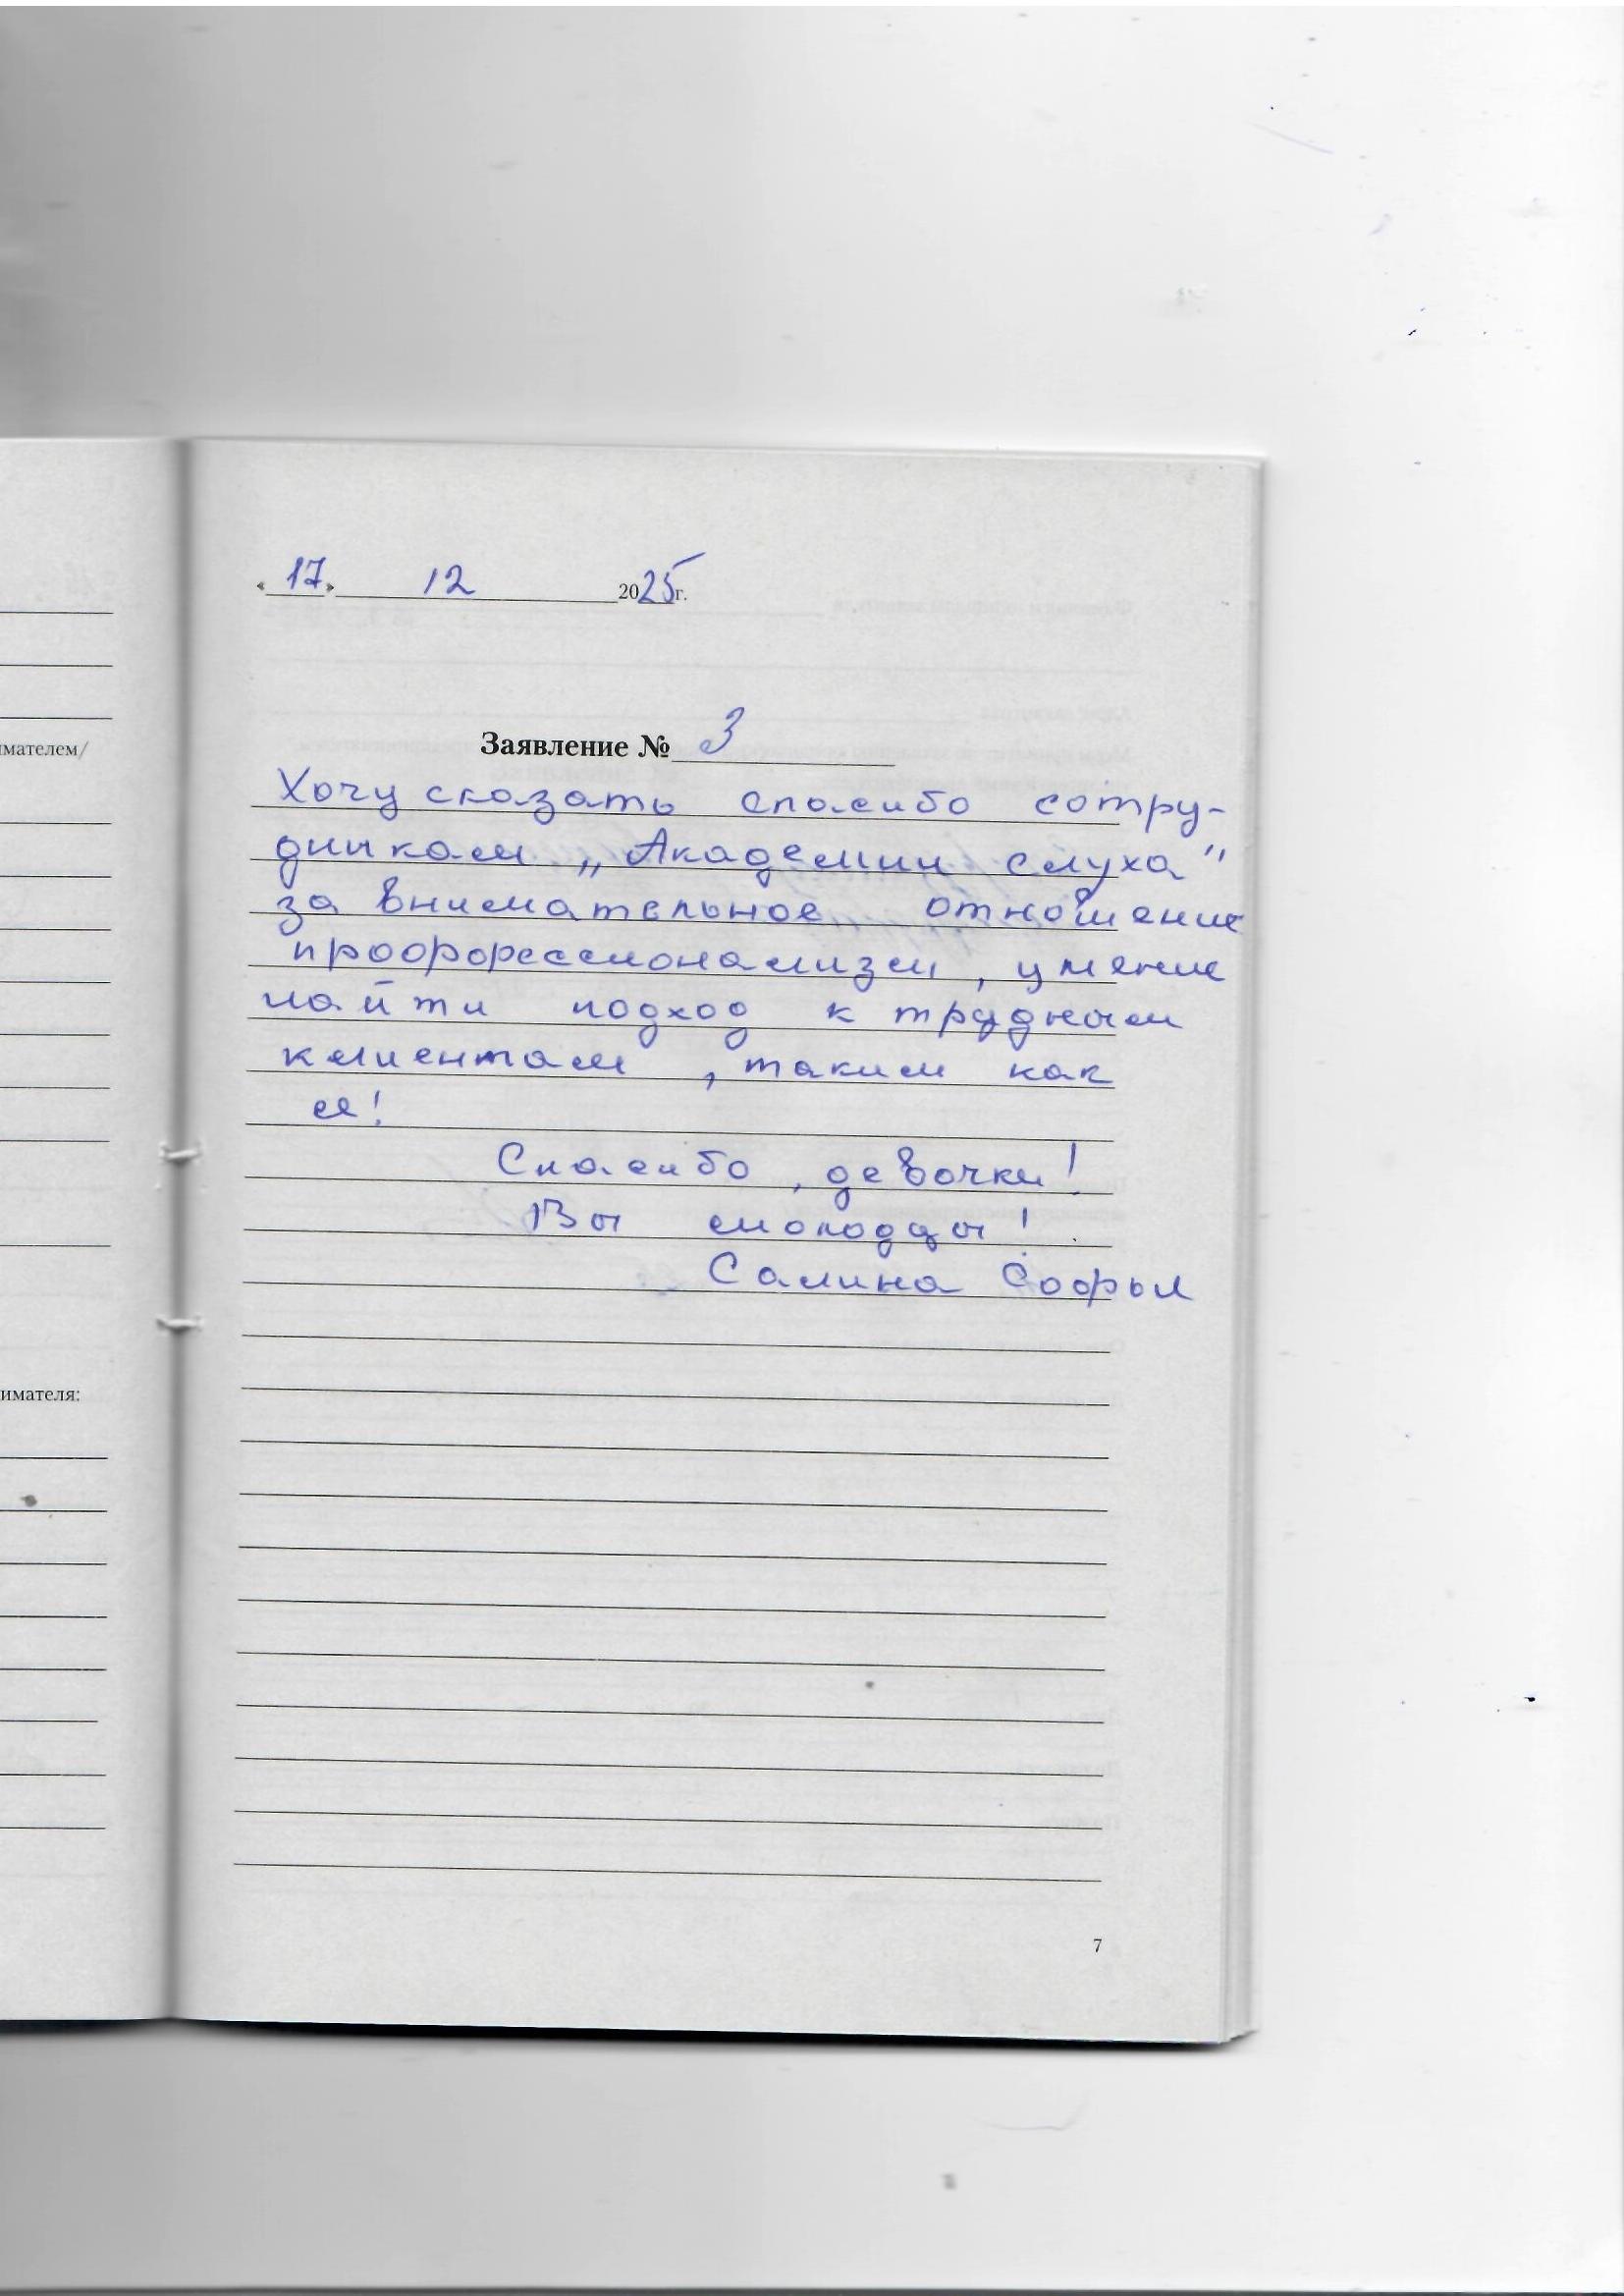 «17» 12 2025г.
Заявление № 3
Хочу сказать спасибо сотру-
дникам „Академии слуха"
за внимательное отношение
профорессионализм, умение
найти подход к трудным
клиентам, таким как
я!
Спасибо, девочки!
Вы молодцы!
Салина Софья
7
имателем/
имателя: